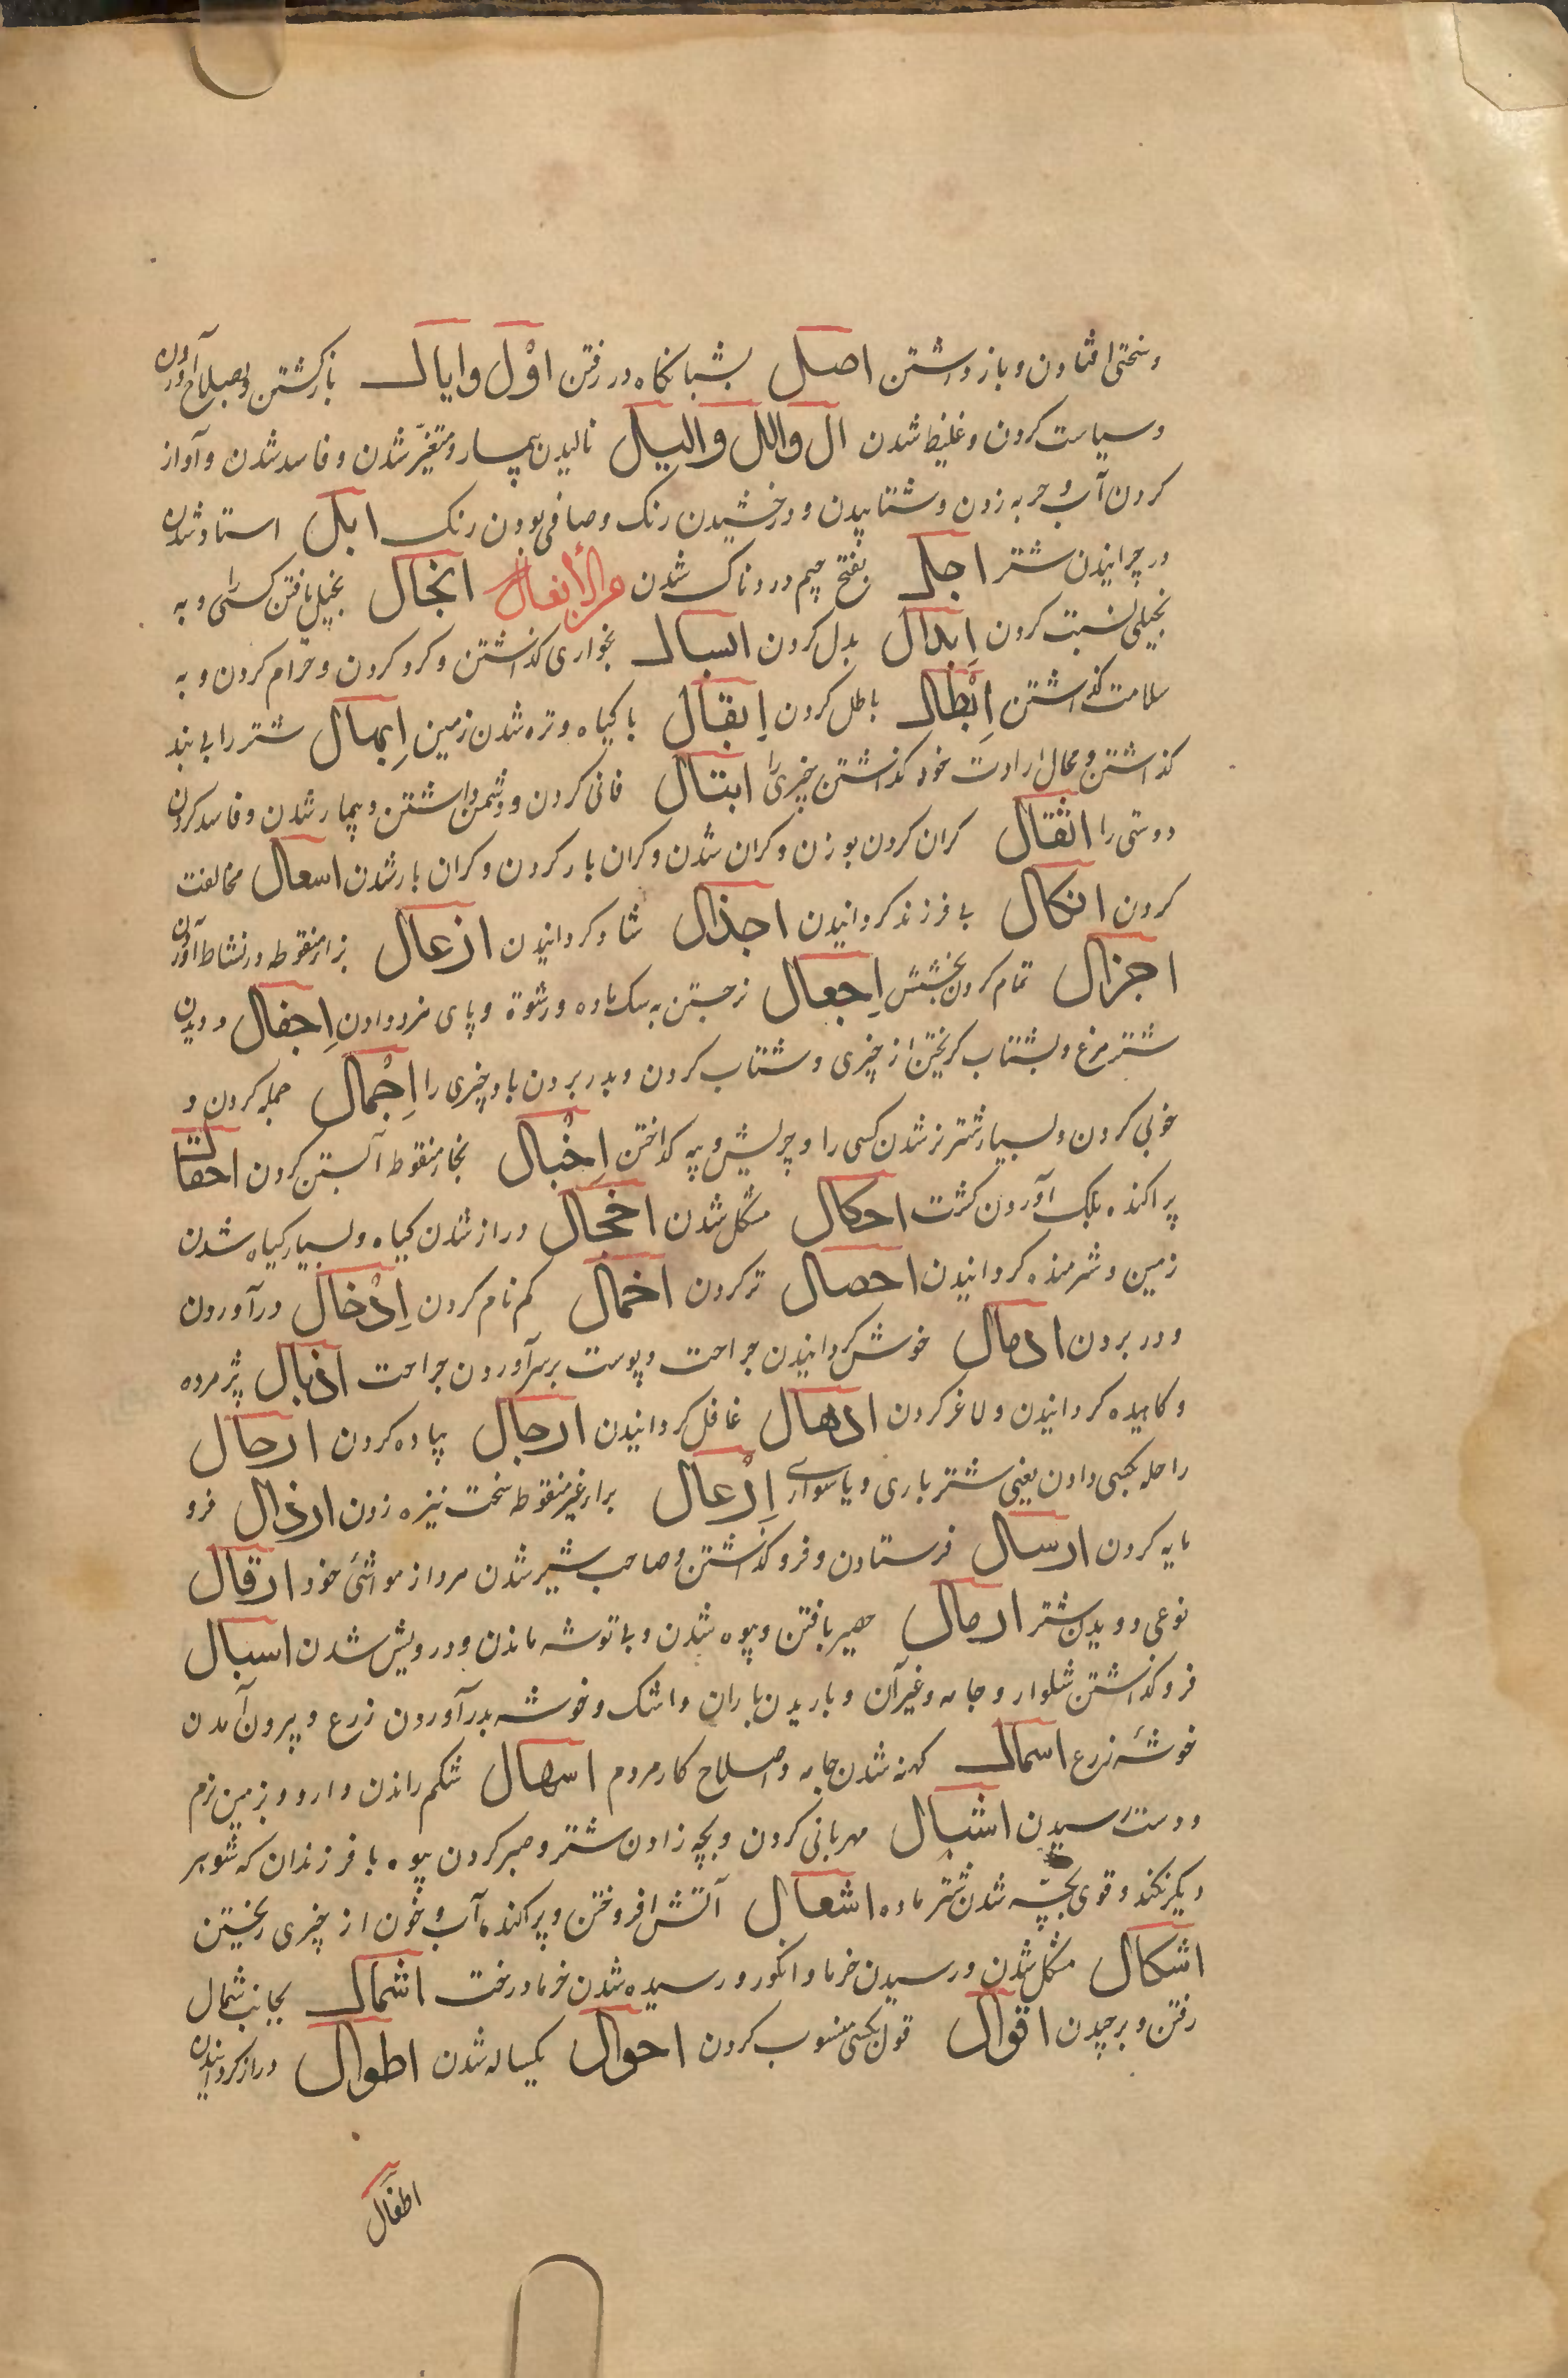 و سختی افتادن و باز داشتن اصل بشبانکاه در رفتن اوْل وایال باز کشتن و بصلاح آوردن
و سیاست کردن و غلیظ شدن ال والل والیل نالیدن بیمار و متغیّر شدن و فاسد شدن و آواز
کردن آب و حربه زدن و شتابیدن و درخشیدن رنک و صافی بودن رنک ابل استاد شدن
در چرانیدن شتر اجل بفتح جیم دردناک شدن من الأفعال ابخال بخیل یافتن کسی را و به
بخیلی نسبت کردن اِبدال بدل کردن ابسال بخواری کذاشتن و کرو کردن و حرام کردن و به
سلامت کذاشتن اِبْطال باطل کردن اِبقال با کیاه و تره شدن زمین اِبهال شتر را بی بند
کذاشتن و بحال ارادت خود کذاشتن چیزی را ابتال فانی کردن و دشمن داشتن و بیمار شدن و فاسد کردن
دوستی را اثقال کران کردن بوزن و کران شدن و کران بار کردن و کران بار شدن اسعال مخالفت
کردن اثکال بی فرزند کردانیدن اجذال شاد کردانیدن ازعال بزاء منقوطه در نشاط آوردن
اجزال تمام کردن بخشش اِجعال نر جستن به سک ماده و رشوة و پای مزد دادن اِجفال دویدن
شتر مرغ و بشتاب کریختن از چیزی و شتاب کردن و بدر بردن باد چیزی را اِجْمال جمله کردن و
خوبی کردن و بسیار شتر نر شدن کسی را و چربش و پیه کداختن اِخْبال بخاء منقوط آبستن کردن احقال
پراکنده بلک آوردن کشت احکال مشکل شدن اخجال دراز شدن کیاه و بسیار کیاه شدن
زمین و شرمنده کردانیدن احصال تر کردن اخمال کم نام کردن اِدْخال در آوردن
و در بردن ادمال خوش کردانیدن جراحت و پوست بر سر آوردن جراحت اذبال پژمرده
و کاهیده کردانیدن و لاغر کردن اذهال غافل کردانیدن ارجال پیاده کردن ارحال
راحله بکسی دادن یعنی شتر باری و یا سواری اِرْعال براء غیر منقوطه سخت نیزه زدن ارذال فرو
مایه کردن ارسال فرستادن و فرو کذاشتن و صاحب شیر شدن مرد از مواشئ خود ارقال
نوعی دویدن شتر ارمال حصیر بافتن و بیوه شدن و بی توشه ماندن و درویش شدن اسبال
فرو کذاشتن شلوار و جامه و غیر آن و باریدن باران و اشک و خوشه بدر آوردن زرع و بیرون آمدن
خوشهٔ زرع اسمال کهنه شدن جامه و اصلاح کار مردم اسهال شکم راندن دارو و بزمین نرم
و دست رسیدن اشبال مهربانی کردن و بچه زادن شتر و صبر کردن بیوه با فرزندان که شوهر
دیکر نکند و قوی بچّه شدن شتر ماده اشعال آتش افروختن و پراکنده آب و خون از چیزی ریختن
اشکال مشکل شدن و رسیدن خرما و انکور و رسیده شدن خرما درخت اشمال بجانب شمال
رفتن و برچیدن اقوال قول بکسی منسوب کردن احوال یکساله شدن اطوال دراز کردانیدن
اطفال